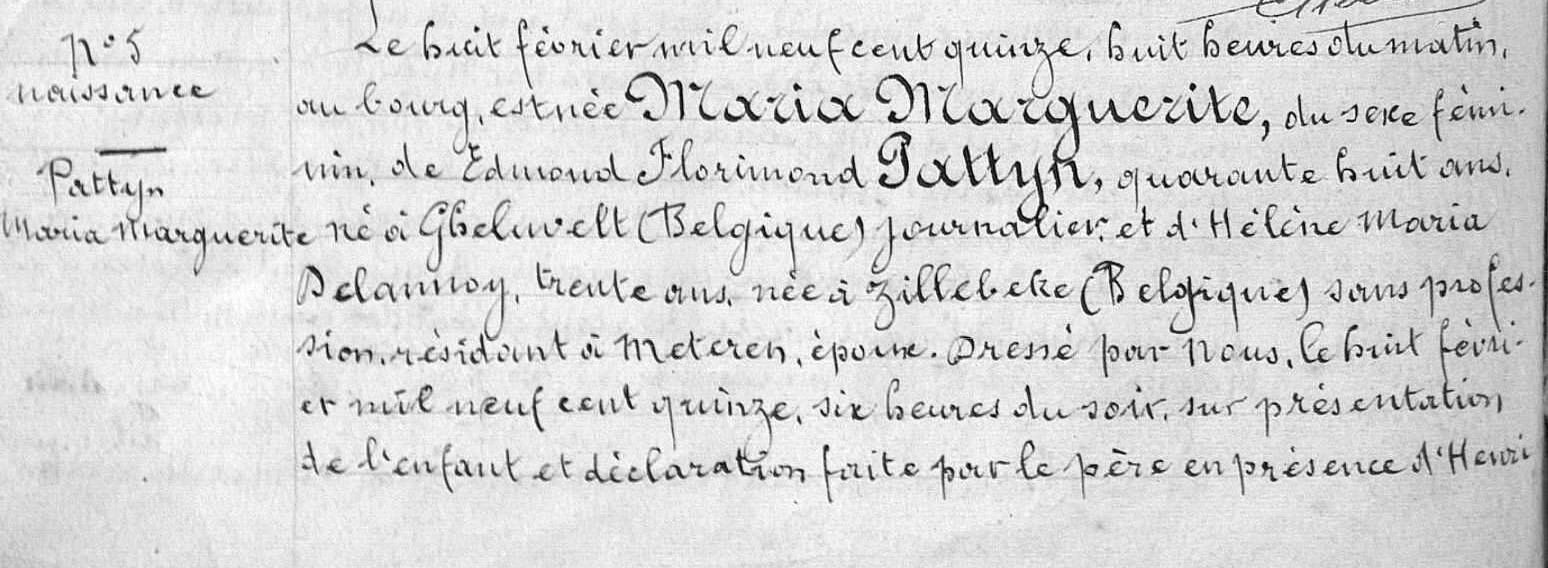 N° 5
naissance
Pattyn
Maria Marguerite
Le huit février mil neuf cent quinze, huit heures du matin,
au bourg, est née Maria Marguerite, du sexe fémi-
nin, de Edmond Florimond Pattyn, quarante huit ans,
né à Gheluvelt (Belgique) journalier, et d'Hélène Maria
Delannoy, trente ans, née à Zillebeke (Belgique) sans profes-
sion, résidant à Meteren, épouse. Dressé par Nous, le huit févri-
er mil neuf cent quinze, six heures du soir, sur présentation
de l'enfant et déclaration faite par le père en présence d'Henri